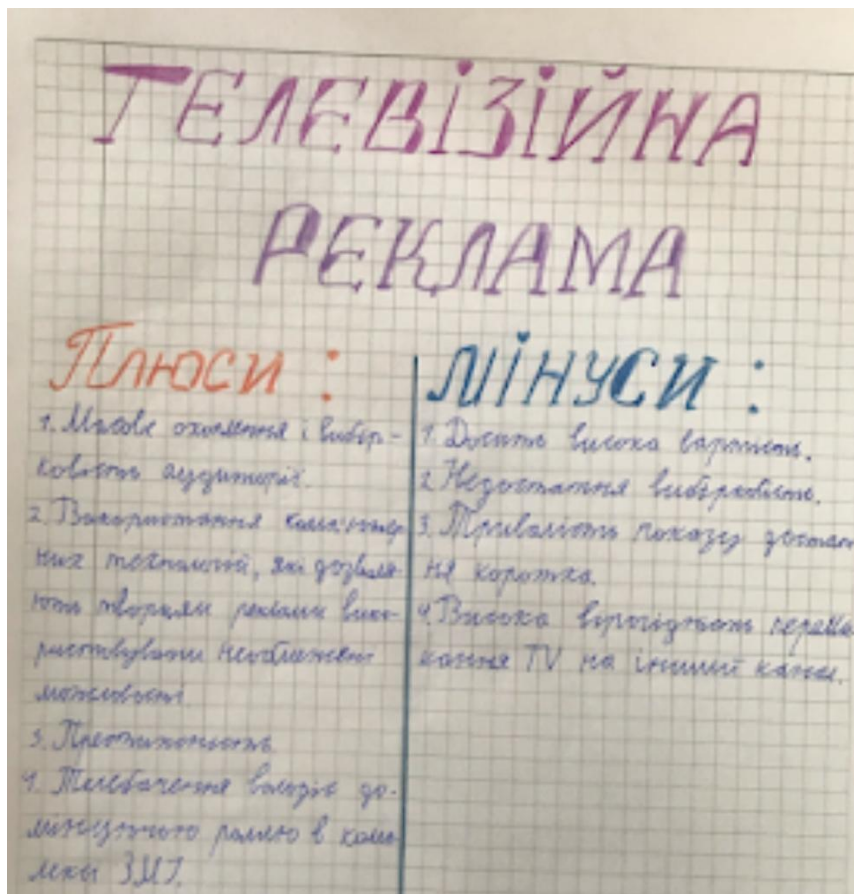 ТЕЛЕВІЗІЙНА
РЕКЛАМА
Плюси :
1. Масове охоплення і вибір-
ковість аудиторії.
2. Використання комп'ютер
них технологій, які дозволя-
ють творцям реклами вико-
ристовувати необмежені
можливості.
3. Престижність
4. Телебачення володіє до-
мінуючою роллю в комп-
лексі ЗМІ.
мінуси :
1. Досить висока вартість.
2. Недостатня вибірковість.
3. Тривалість показу достат
ня коротка.
4. Висока вірогідність переми
кання TV на інший канал.